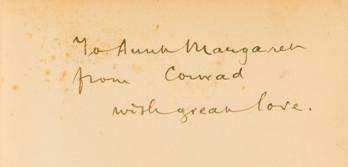 To Aunt Margaret
from Conrad
with great love.